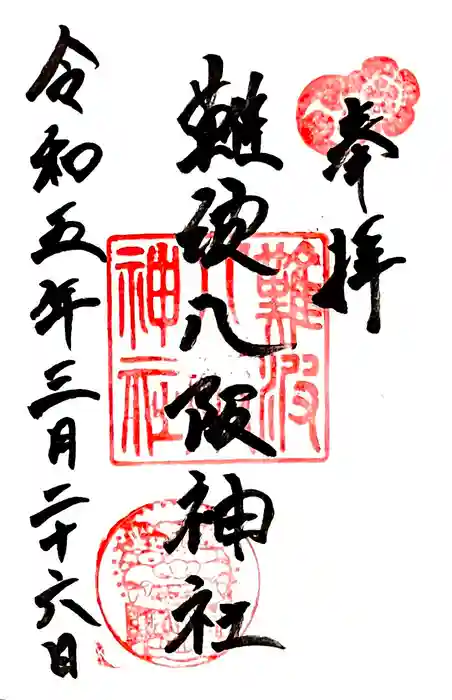 奉拝
難波八阪神社
令和五年三月二十六日
難波
神社